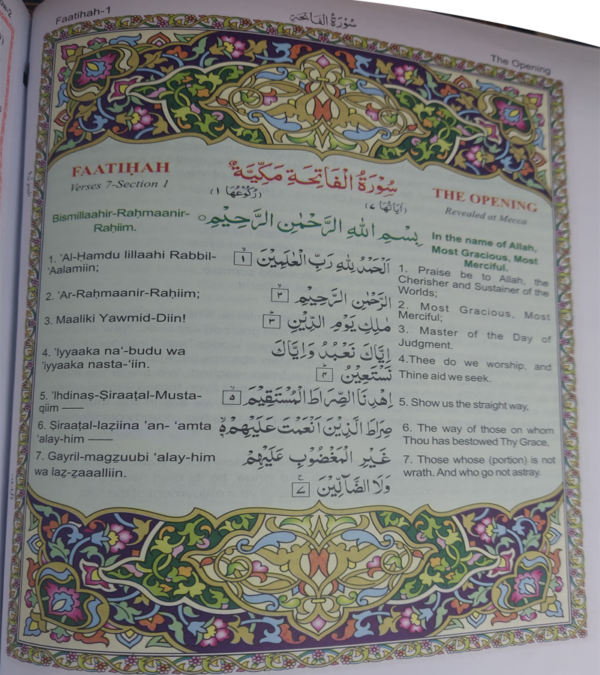 Faatiḥah-1
سُوْرَةُ الْفَاتِحَة
The Opening
FAATIḤAH
Verses 7-Section 1
سُوْرَةُ الْفَاتِحَةِ مَكِّيَّةٌ
اٰيَاتُهَا ٧
رُكُوْعُهَا ١
THE OPENING
Revealed at Mecca
Bismillaahir-Raḥmaanir-
Raḥiim.
بِسْمِ اللهِ الرَّحْمٰنِ الرَّحِيْمِ
In the name of Allah,
Most Gracious, Most
Merciful.
1. 'Al-Ḥamdu lillaahi Rabbil-
'Aalamiin;
اَلْحَمْدُ لِلّٰهِ رَبِّ الْعٰلَمِيْنَ ١
1. Praise be to Allah, the
Cherisher and Sustainer of the
Worlds;
2. 'Ar-Raḥmaanir-Raḥiim;
الرَّحْمٰنِ الرَّحِيْمِ ٢
2. Most Gracious, Most
Merciful;
3. Maaliki Yawmid-Diin!
مٰلِكِ يَوْمِ الدِّيْنِ ٣
3. Master of the Day of
Judgment.
4. 'Iyyaaka na'-budu wa
'iyyaaka nasta-'iin.
اِيَّاكَ نَعْبُدُ وَاِيَّاكَ
نَسْتَعِيْنُ ٤
4.Thee do we worship, and
Thine aid we seek.
5. 'Ihdinaṣ-Ṣiraaṭal-Musta-
qiim ——
اِهْدِنَا الصِّرَاطَ الْمُسْتَقِيْمَ ٥
5. Show us the straight way,
6. Ṣiraaṭal-laẕiina 'an- 'amta
'alay-him ——
صِرَاطَ الَّذِيْنَ اَنْعَمْتَ عَلَيْهِمْ ٦
6. The way of those on whom
Thou has bestowed Thy Grace,
7. Gayril-magẓuubi 'alay-him
wa laẓ-ẓaaalliin.
غَيْرِ الْمَغْضُوْبِ عَلَيْهِمْ
وَلَا الضَّآلِّيْنَ ٧
7. Those whose (portion) is not
wrath. And who go not astray.